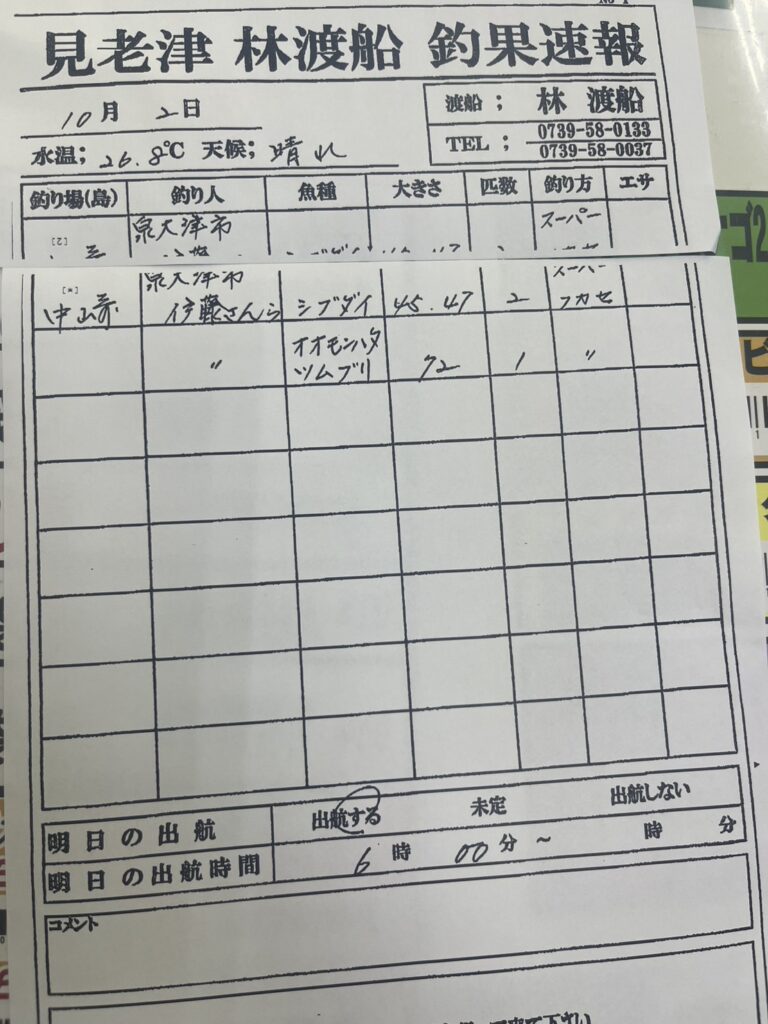 見老津 林渡船 釣果速報
10月 2日
渡船; 林 渡船
水温; 26.8℃ 天候; 晴れ
TEL; 0739-58-0133
0739-58-0037
釣り場(島) 釣り人 魚種 大きさ 匹数 釣り方 エサ
泉大津市 スーパー
泉大津市 スーパー
伊藤さんら シブダイ 45.47 2 フカセ
〃 オオモンハタ
ツムブリ 72 1 〃
明日の出航 出航する 未定 出航しない
明日の出航時間 6時 00分 ~ 時 分
コメント